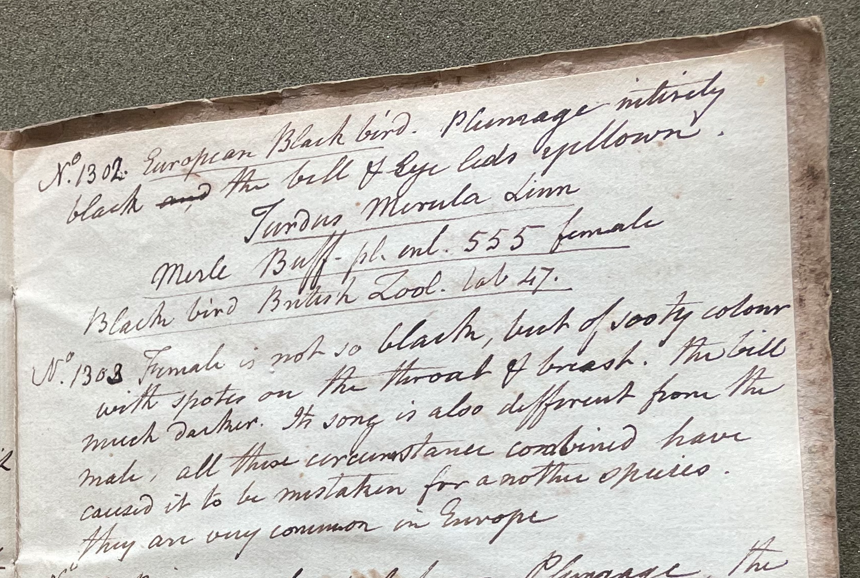 No. 1302. European Black bird. Plumage intirely
black and the bill & Eye lids yellown.
Turdus Merula Linn
Merle Buff. pl. enl. 555 female
Black bird British Zool. tab 47.
No. 1303 Female is not so black, but of sooty colour
with spots on the throat & breast. The bill
much darker. Its song is also different from the
male, all these circumstance combined have
caused it to be mistaken for another species.
they are very common in Europe
No
Plumage, the